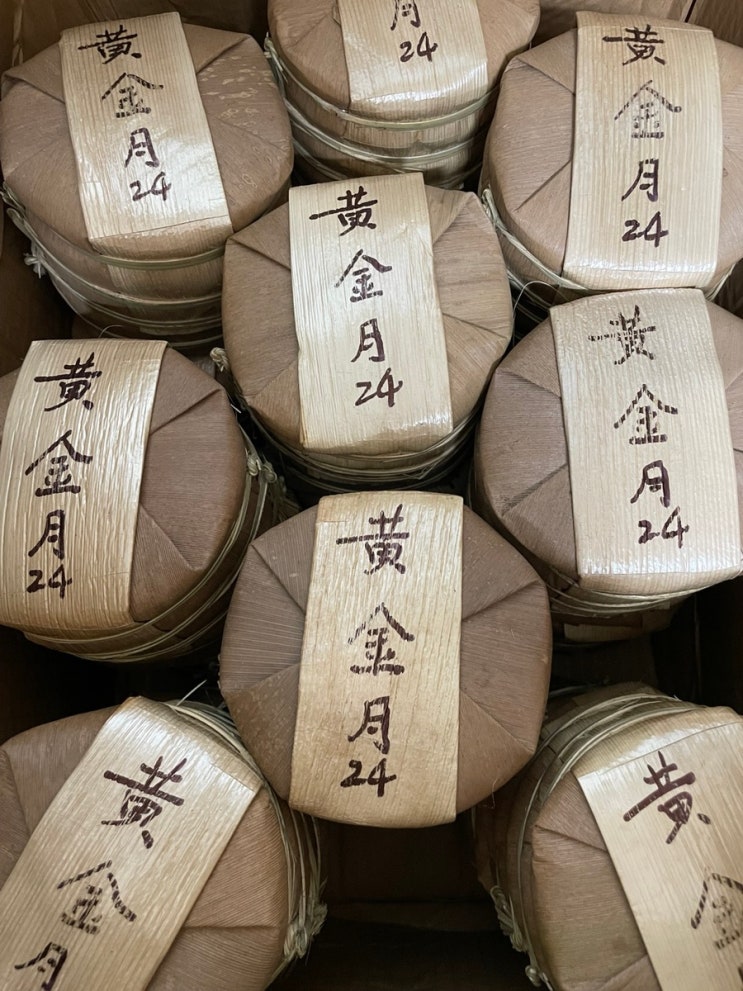 黄金月24
月24
黄金月24
黄金月24
黄金月24
黄金月24
黄金月24
黄金月
黄金